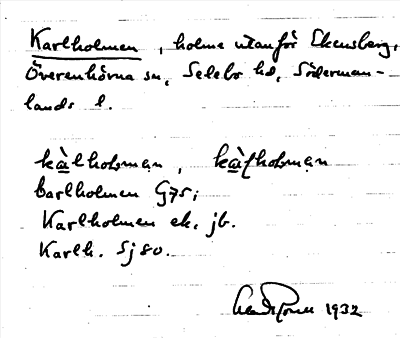 Karlholmen, holme utanför Ekensberg,
Överenhörna sn, Selebo hd, Söderman-
lands l.
kàlholman, kàlholman
Carlholmen G75;
Karlholmen ek. jb.
Karlh. Sj 80.
1932